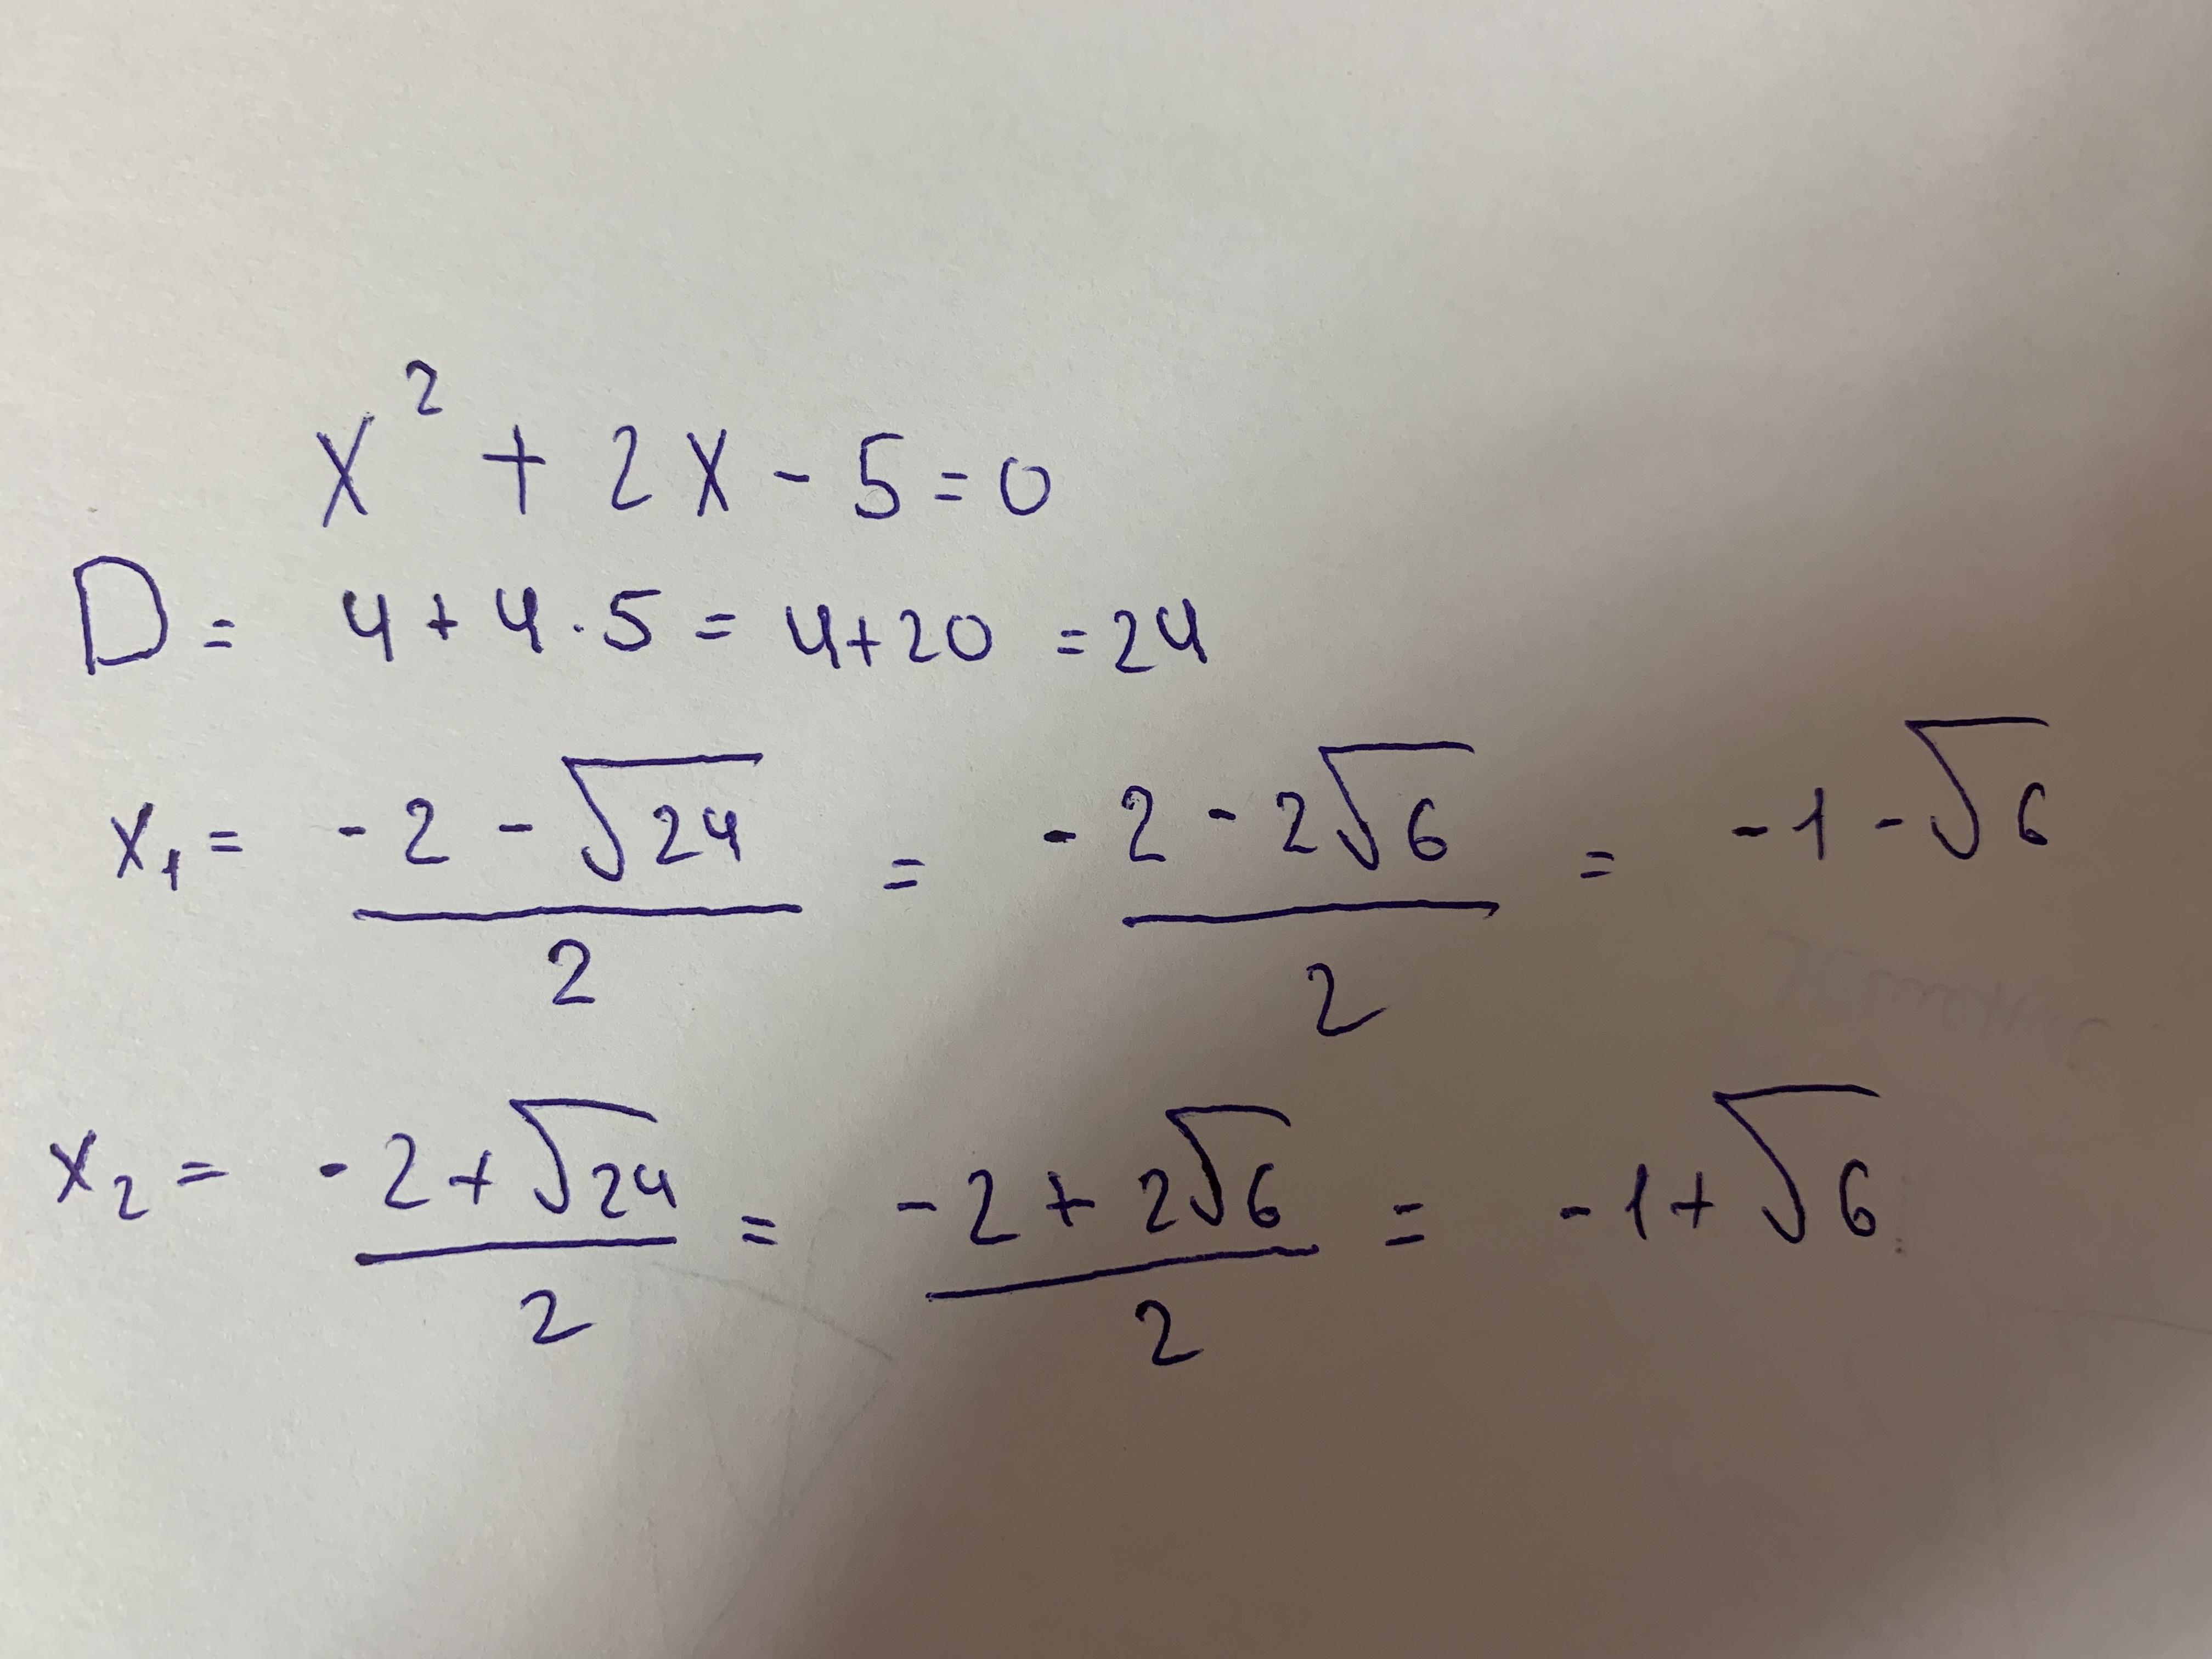 x² + 2x - 5 = 0
D = 4 + 4 · 5 = 4 + 20 = 24
x₁ = (-2 - √24)/2 = (-2 - 2√6)/2 = -1 - √6
x₂ = (-2 + √24)/2 = (-2 + 2√6)/2 = -1 + √6